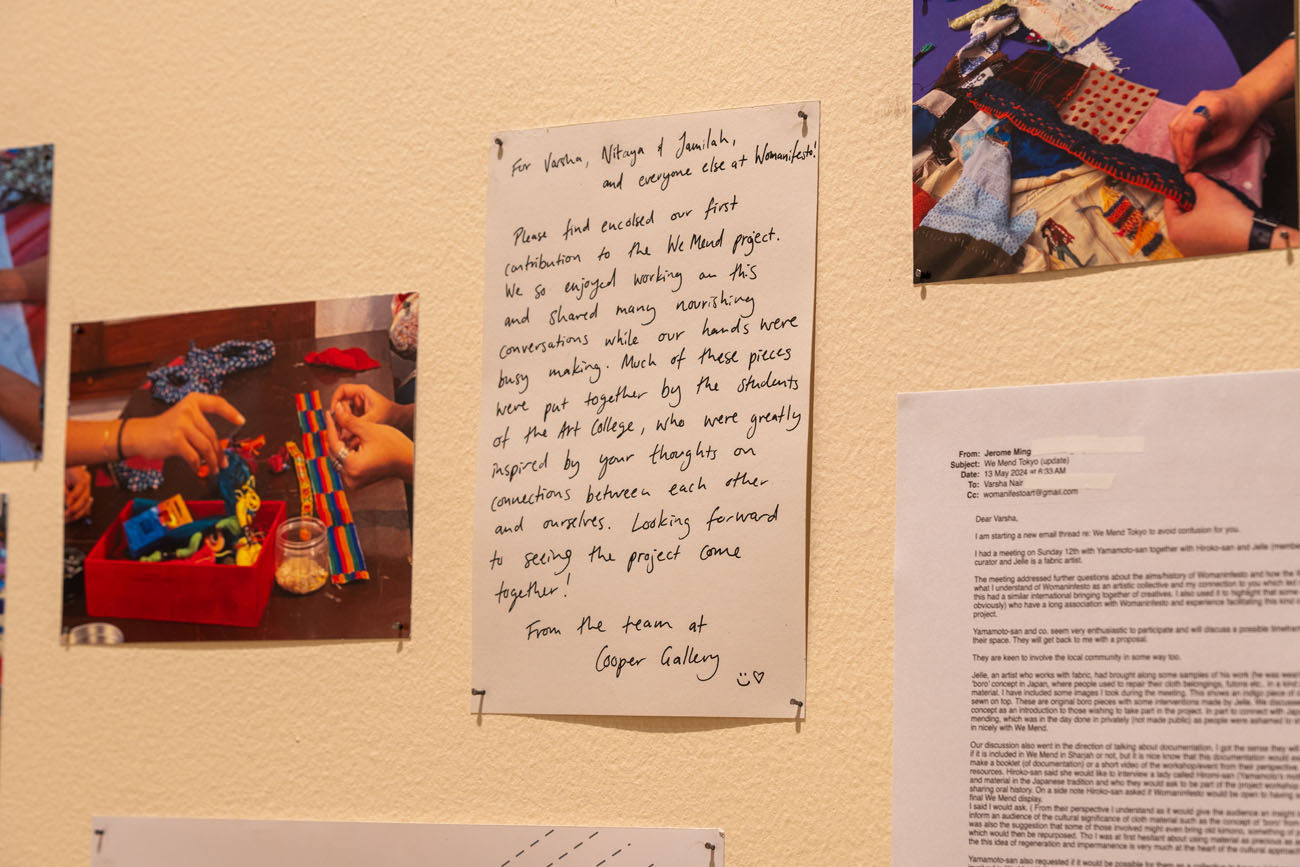 For Varsha, Nitaya & Jamilah,
and everyone else at Womanifesto!
Please find encolsed our first
contribution to the We Mend project.
We so enjoyed working on this
and shared many nourishing
conversations while our hands were
busy making. Much of these pieces
were put together by the students
of the Art College, who were greatly
inspired by your thoughts on
connections between each other
and ourselves. Looking forward
to seeing the project come
together!
From the team at
Cooper Gallery
From: Jerome Ming
Subject: We Mend Tokyo (update)
Date: 13 May 2024 at 6:33 AM
To: Varsha Nair
Cc: womanifestoart@gmail.com
Dear Varsha,
I am starting a new email thread re: We Mend Tokyo to avoid confusion for you.
I had a meeting on Sunday 12th with Yamamoto-san together with Hiroko-san and Jelle
curator and Jelle is a fabric artist.
The meeting addressed further questions about the aims/history of Womaninfesto and how the
what I understand of Womaninfesto as an artistic collective and my connection to you which led
this had a similar international bringing together of creatives. I also used it to highlight that some
obviously) who have a long association with Womaninfesto and experience facilitating this kind
project.
Yamamoto-san and co. seem very enthusiastic to participate and will discuss a possible
their space. They will get back to me with a proposal.
They are keen to involve the local community in some way too.
Jelle, an artist who works with fabric, had brought along some samples of his work (he was
'boro' concept in Japan, where people used to repair their cloth belongings, futons etc.. in a
material. I have included some images I took during the meeting. This shows an indigo piece of
sewn on top. These are original boro pieces with some interventions made by Jelle. We
concept as an introduction to those wishing to take part in the project. In part to connect with
mending, which was in the day done in privately (not made public) as people were ashamed to
in nicely with We Mend.
Our discussion also went in the direction of talking about documentation. I got the sense they
if it is included in We Mend in Sharjah or not, but it is nice know that this documentation would
make a booklet (of documentation) or a short video of the workshop/event from their
resources. Hiroko-san said she would like to interview a lady called Hiromi-san
and material in the Japanese tradition and who they would ask to be part of the project
sharing oral history. On a side note Hiroko-san asked if Womaninfesto would be open to having
final We Mend display.
I said I would ask. ( From their perspective I understand as it would give the audience an
inform an audience of the cultural significance of cloth material such as the concept of 'boro'
was also the suggestion that some of those involved might even bring old kimono, something
which would then be repurposed. Tho I was at first hesitant about using material as precious as
the this idea of regeneration and impermanence is very much at the heart of the cultural
Yamamoto-san also requested if it would be possible for them as a